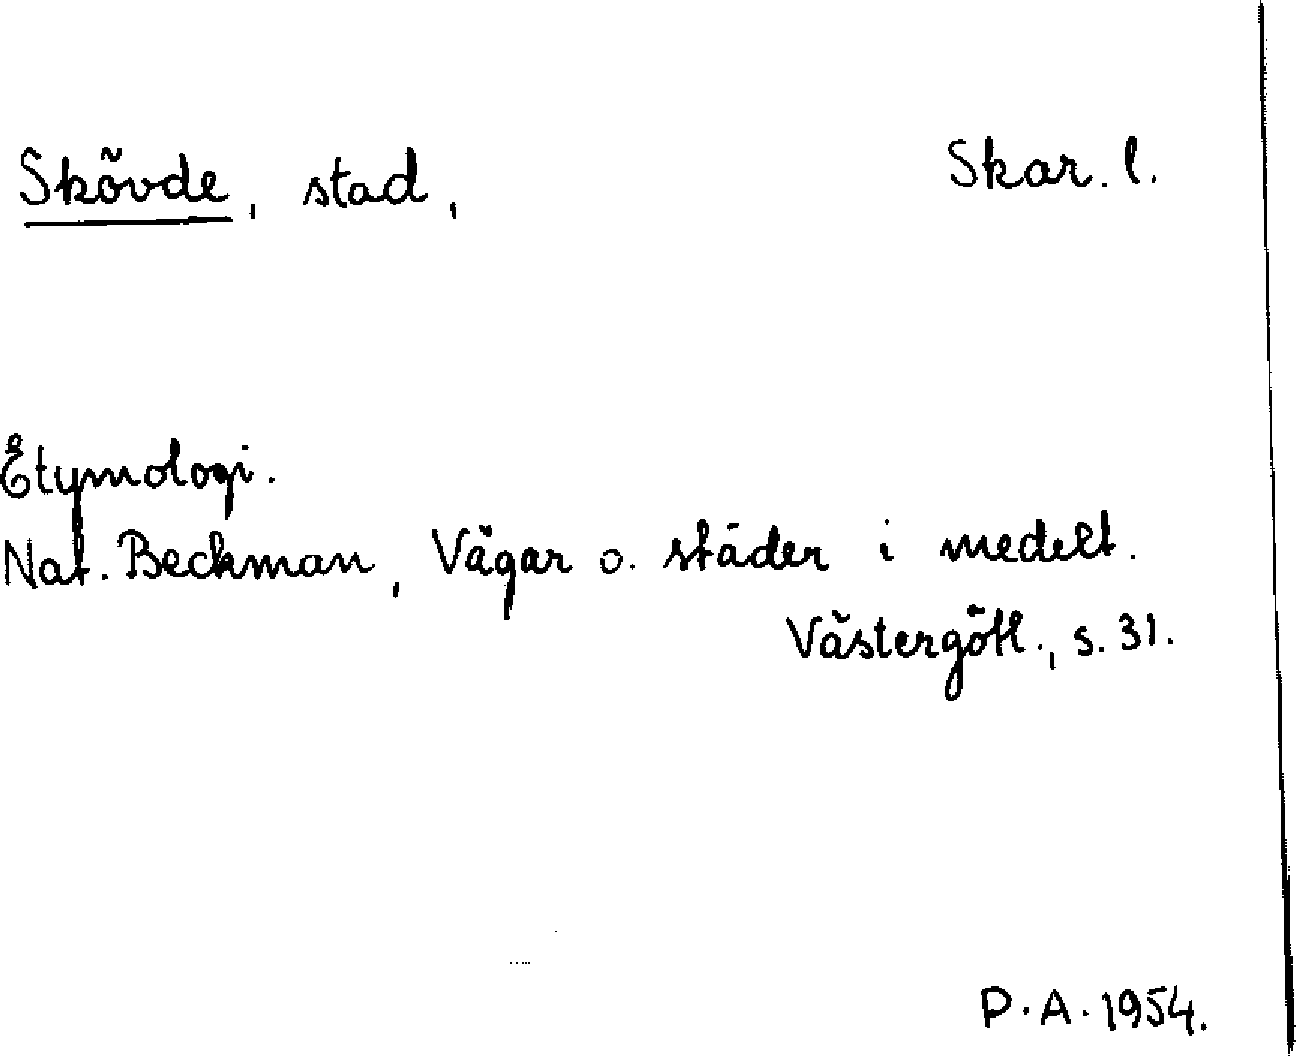 Skövde, stad, Skar. l.
Etymologi.
Nat. Beckman, Vägar o. städer i medelt.
Västergötl., s. 31.
P.A. 1954.